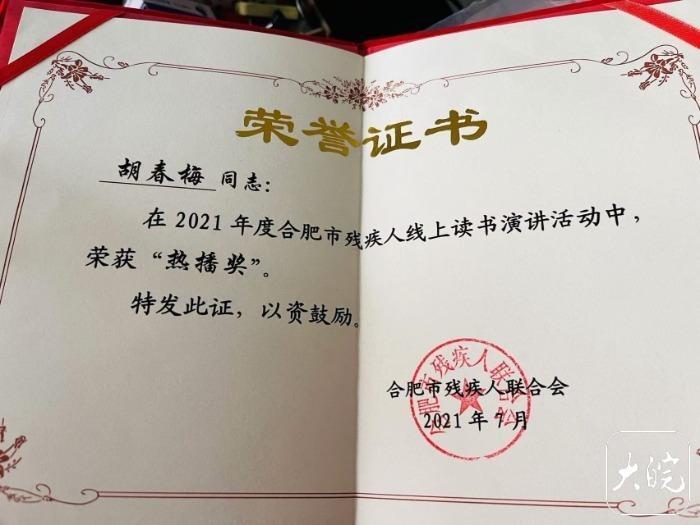 荣誉证书
胡春梅 同志：
在 2021 年度合肥市残疾人线上读书演讲活动中，
荣获“热播奖”。
特发此证，以资鼓励。
合肥市残疾人联合会
合肥市残疾人联合会
2021 年 7 月
大皖